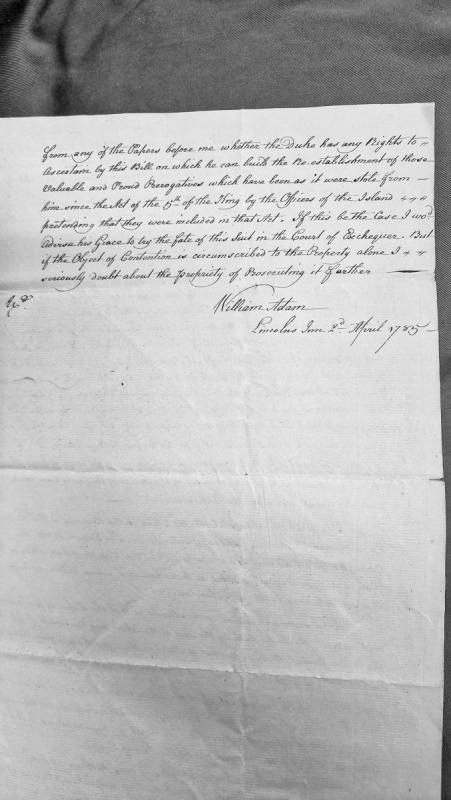 from any of the Papers before me whether the Duke has any Rights to
Ascertain by this Bill on which he can build the Re-establishment of those
Valuable and Proud Prerogatives which have been as it were stole from
him since the Act of the 5th of the King by the Officers of the Island
pretending that they were included in that Act. If this be the Case I wod
Advise his Grace to try the fate of this Suit in the Court of Exchequer. But
if the Object of Contention is circumscribed to the Property alone I
seriously doubt about the propriety of Prosecuting it farther
William Adam
Lincolns Inn 2d April 1785